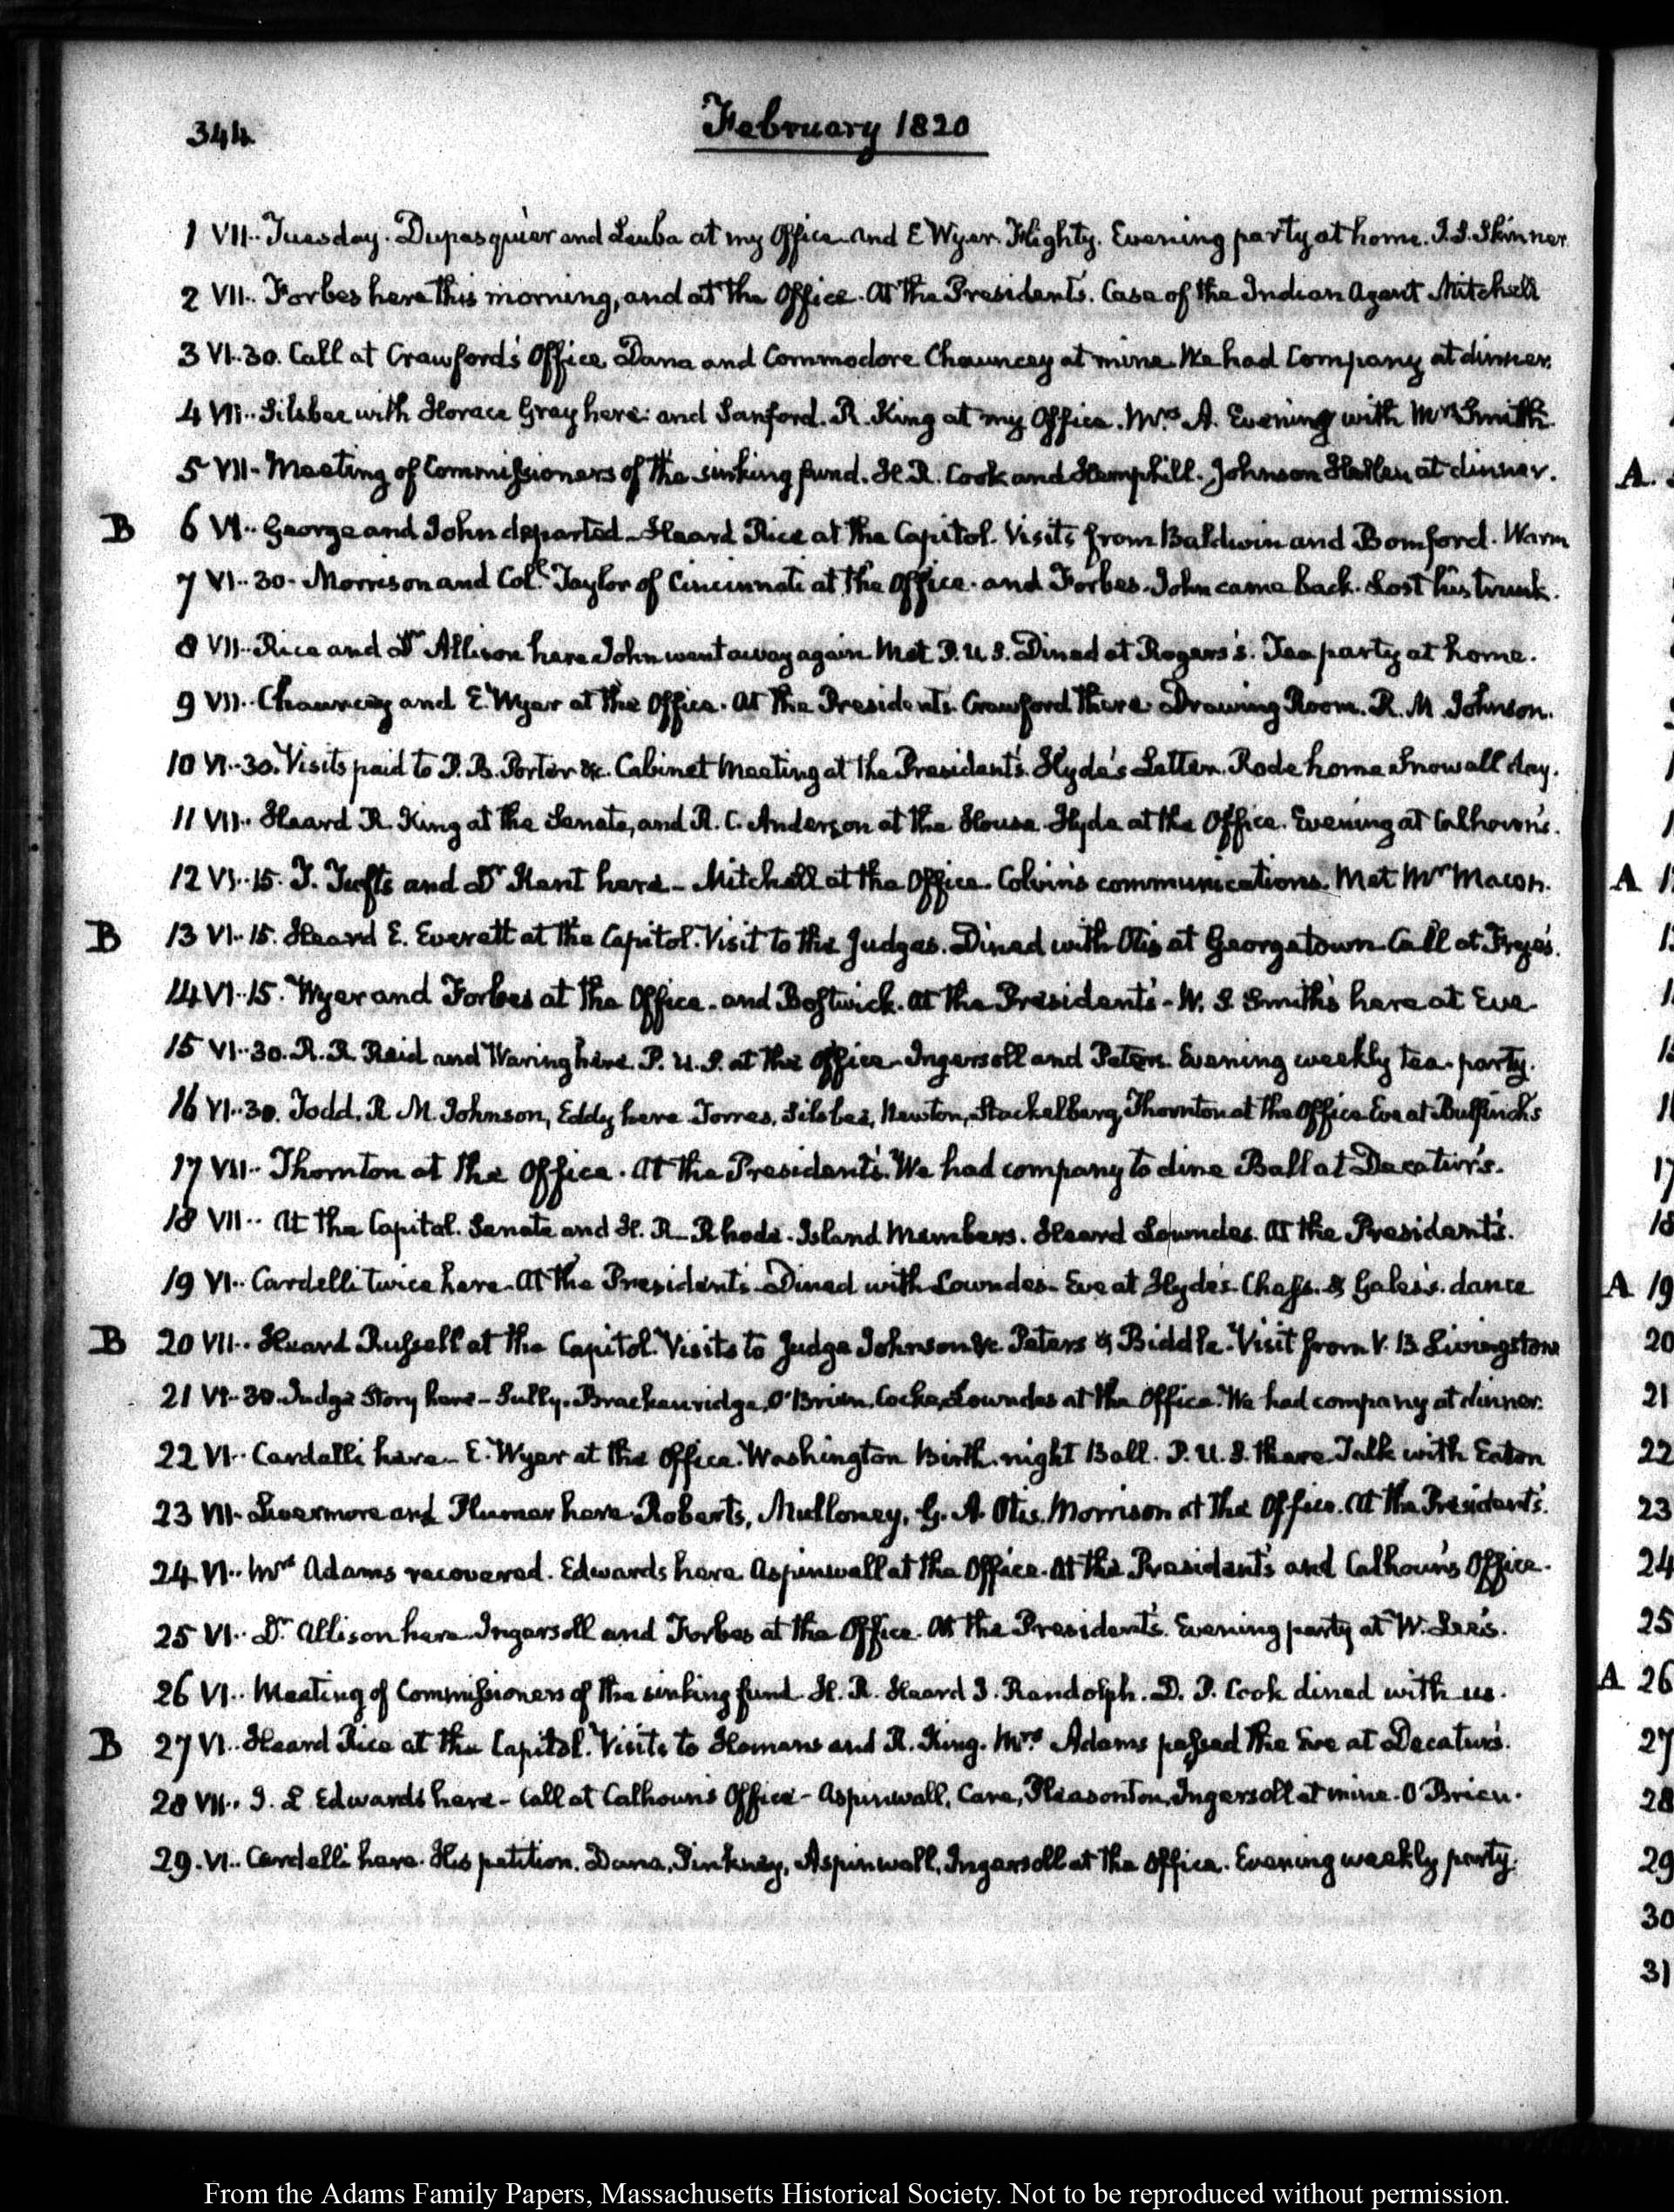 344
February 1820
1 VII.. Tuesday. Dupasquier and Leuba at my Office and E Wyer. Flighty. Evening party at home. J. S. Skinner
2 VII.. Forbes here this morning, and at the Office. At the Presidents. Case of the Indian Agent Mitchell
3 VI..30. Call at Crawford's Office. Dana and Commodore Chauncey at mine We had Company at dinner.
4 VII.. Silsbee with Horace Gray here: and Sanford. R. King at my Office. Mrs. A. Evening with Mrs Smith
A.
5 VII- Meeting of Commissioners of the sinking fund. H. R. Cook and Hemphill. Johnson at dinner.
B 6 VI.. George and John departed - Heard Rice at the Capitol. Visits from Baldwin and Bomford. Warm
7 VI..30- Morrison and Coll. Taylor of Cincinnati at the Office. and Forbes. John came back. Lost his trunk.
8 VII.. Rice and Dr Allison here John went away again Met P. U. S. Dined at Rogers's. Tea party at home.
9 VII.. Chauncey and E. Wyer at the Office. At the Presidents. Crawford there Drawing Room. R. M. Johnson.
10 VI..30. Visits paid to P. B. Porter &c. Cabinet Meeting at the President's. Hyde's Letter. Rode home Snow all day.
11 VII.. Heard R. King at the Senate, and R. C. Anderson at the House Hyde at the Office. Evening at Calhoun's.
12 VI..15. J. Tufts and Dr Kent here - Mitchell at the Office. Colvin's communications. Met Mr Macon.
A 1
B 13 VI..15. Heard E. Everett at the Capitol. Visit to the Judges. Dined with Otis at Georgetown Call at Frye's.
14 VI..15. Wyer and Forbes at the Office - and Bostwick. At the President's - W. S. Smith's here at Eve
15 VI..30. R. R. Reid and Waring here. P. U. S. at the Office - Ingersoll and Peters. Evening weekly tea-party.
16 VI..30. Todd, R M. Johnson, Eddy here Torres, Silsbee, Newton, Stackelberg, Thornton at the Office Eve at Bulfinch's
17 VII.. Thornton at the Office. At the President's. We had company to dine Ball at Decatur's.
17
18 VII.. At the Capitol. Senate and H. R. Rhode-Island Members. Heard Lowndes. At the President's.
18
19 VI.. Cardelli twice here - At the President's Dined with Lowndes - Eve at Hyde's. Chess. & Gales's. dance
A 19
B 20 VII.. Heard Russell at the Capitol. Visits to Judge Johnson &c. Peters & Biddle. Visit from V. B. Livingstone
20
21 VI..30. Judge Story here - Sully. Brackenridge, O'Brien. Cocke, Lowndes at the Office. We had company at dinner.
21
22 VI.. Cardelli here - E. Wyer at the Office. Washington Birth-night Ball. P. U. S. there Talk with Eaton
22
23 VII- Livermore and Plumer here. Roberts, Mulloney, G. A. Otis, Morrison at the Office. At the President's.
23
24 VI.. Mrs Adams recovered. Edwards here Aspinwall at the Office. At the President's and Calhoun's Office.
24
25 VI.. Dr. Allison here. Ingersoll and Forbes at the Office. At the President's. Evening party at W. Lee's.
25
26 VI.. Meeting of Commissioners of the sinking fund H. R. Heard J. Randolph. D. P. Cook dined with us.
A 26
B 27 VI.. Heard Rice at the Capitol. Visits to Homans and R. King. Mrs. Adams passed the Eve at Decatur's.
27
28 VII.. J. L. Edwards here - Call at Calhoun's Office - Aspinwall, Cane, Pleasonton, Ingersoll at mine. O'Brien.
28
29. VI.. Cardelli here. His petition. Dana, Pinkney, Aspinwall, Ingersoll at the Office. Evening weekly party.
29
30
31
From the Adams Family Papers, Massachusetts Historical Society. Not to be reproduced without permission.